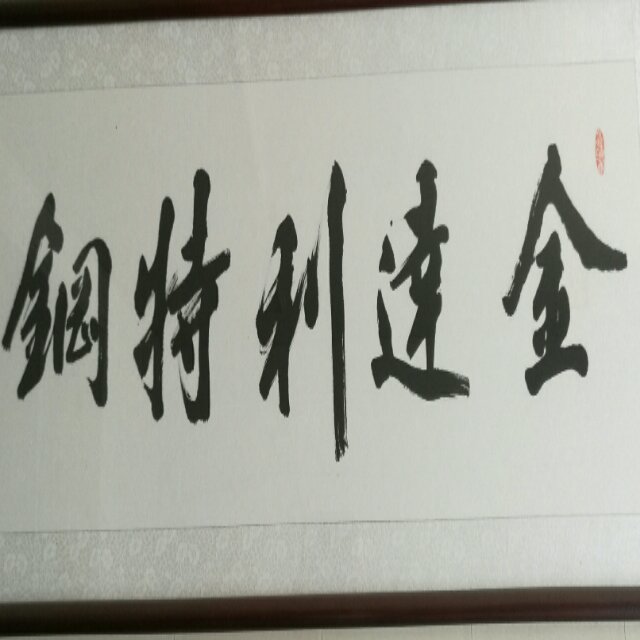 金達利特鋼